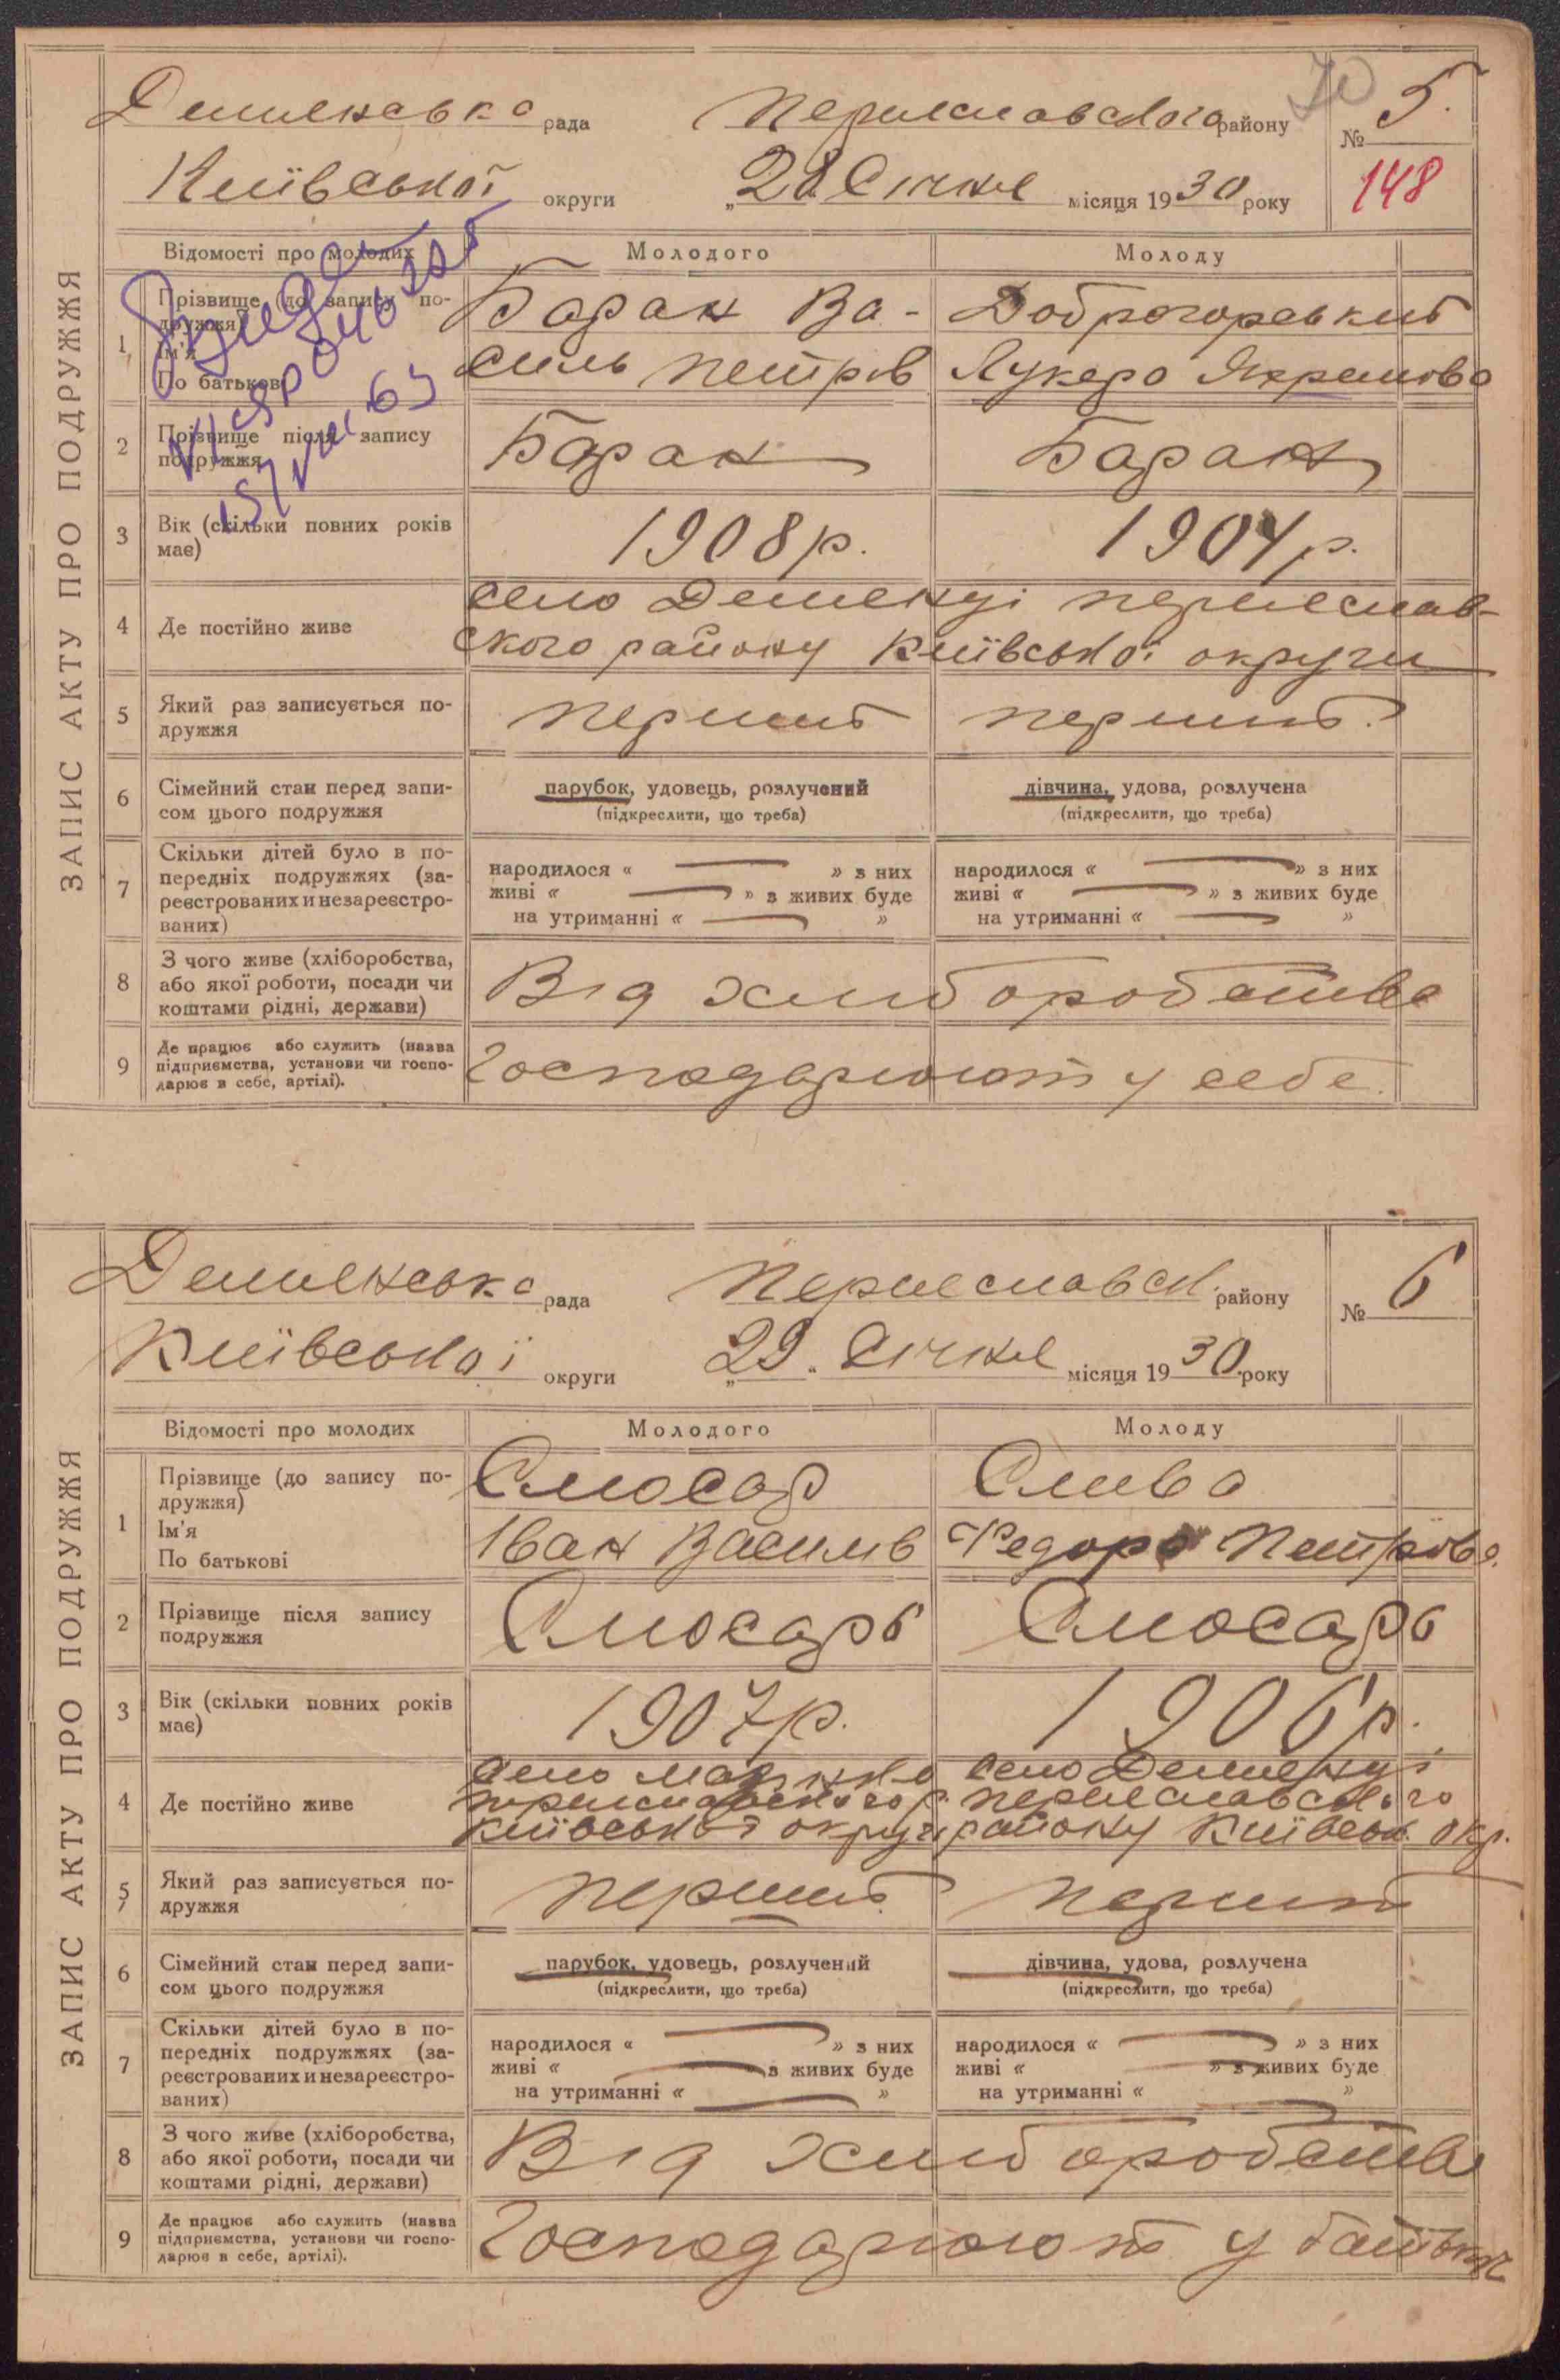 70
Демкенська рада Переяславського району № 5.
Київської округи „28 Січня місяця 1930 року 148
ЗАПИС АКТУ ПРО ПОДРУЖЖЯ
Відомості про молодих Молодого Молоду
1 Прізвище (до запису по-
дружжя)
Ім'я
По батькові
Баран Ва- Доброгорський
силь Петрів Лукера
2 Прізвище після запису
подружжя
Баран Баран
3 Вік (скільки повних років
має)
1908 р. 1904 р.
4 Де постійно живе
село Переяслав-
ского району Київської округи
5 Який раз записується по-
дружжя
перший перший.
6 Сімейний стан перед запи-
сом цього подружжя
парубок, удовець, розлучений дівчина, удова, розлучена
(підкреслити, що треба) (підкреслити, що треба)
7 Скільки дітей було в по-
передніх подружжях (за-
реєстрованих и незареєстро-
ваних)
народилося « » з них народилося « » з них
живі « » з живих буде живі « » з живих буде
на утриманні « » на утриманні « »
8 З чого живе (хліборобства,
або якої роботи, посади чи
коштами рідні, держави)
Від хліборобства
9 Де працює або служить (назва
підприємства, установи чи госпо-
дарює в себе, артілі).
Господарюють у себе.
рада Переяславськ. району № 6
Київської округи „29. Січня місяця 1930 року
ЗАПИС АКТУ ПРО ПОДРУЖЖЯ
Відомості про молодих Молодого Молоду
1 Прізвище (до запису по-
дружжя)
Ім'я
По батькові
Слюсар Слива
Іван Василів Федора Петрівна
2 Прізвище після запису
подружжя
Слюсарь Слюсарь
3 Вік (скільки повних років
має)
1907 р. 1906 р.
4 Де постійно живе
село село
Переяславського р. Переяславського
Київської округи району Київськ. окр.
5 Який раз записується по-
дружжя
перший перший
6 Сімейний стан перед запи-
сом цього подружжя
парубок, удовець, розлучений дівчина, удова, розлучена
(підкреслити, що треба) (підкреслити, що треба)
7 Скільки дітей було в по-
передніх подружжях (за-
реєстрованих и незареєстро-
ваних)
народилося « » з них народилося « » з них
живі « з живих буде живі « » з живих буде
на утриманні « » на утриманні « »
8 З чого живе (хліборобства,
або якої роботи, посади чи
коштами рідні, держави)
Від хліборобства
9 Де працює або служить (назва
підприємства, установи чи госпо-
дарює в себе, артілі).
Господарюють у батьків